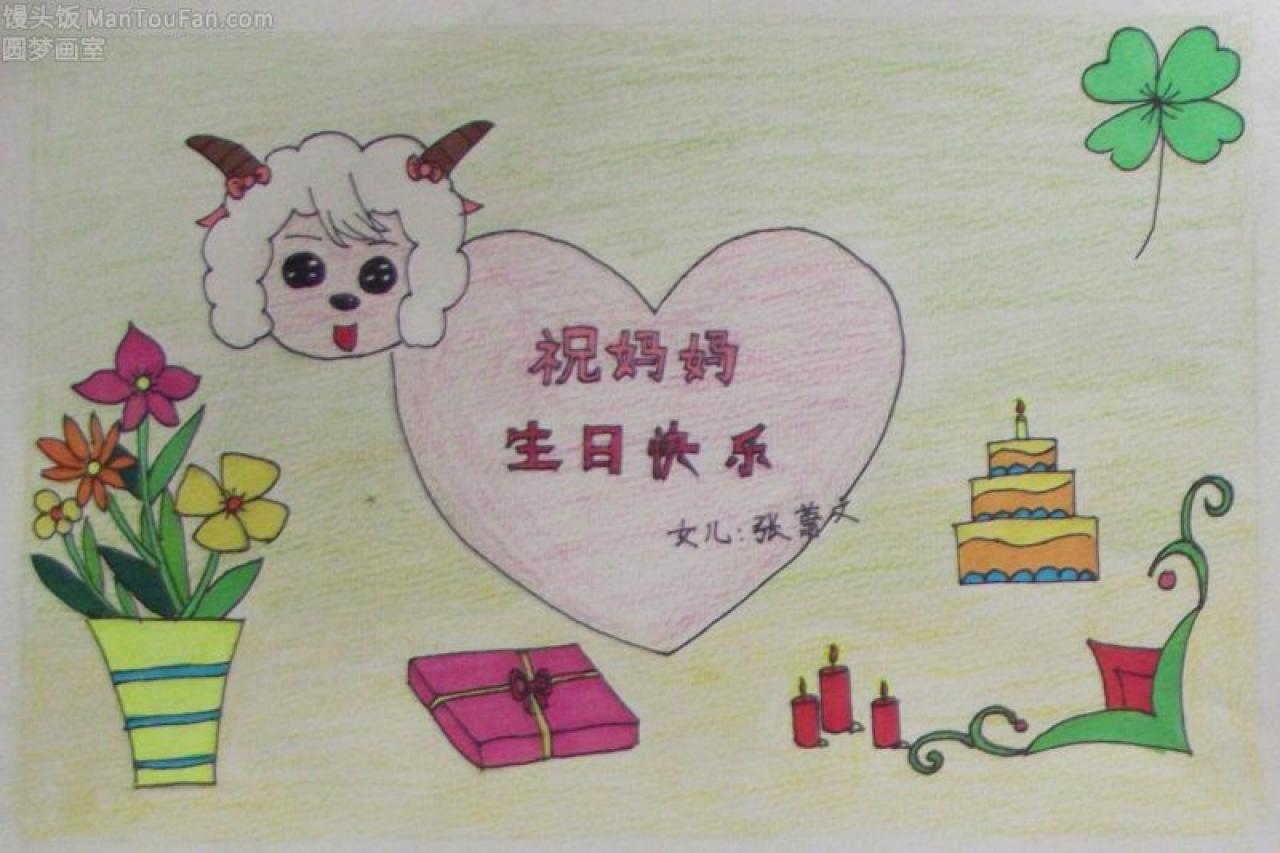 馒头饭 ManTouFan.com
圆梦画室
祝妈妈
生日快乐
女儿:张蕾文